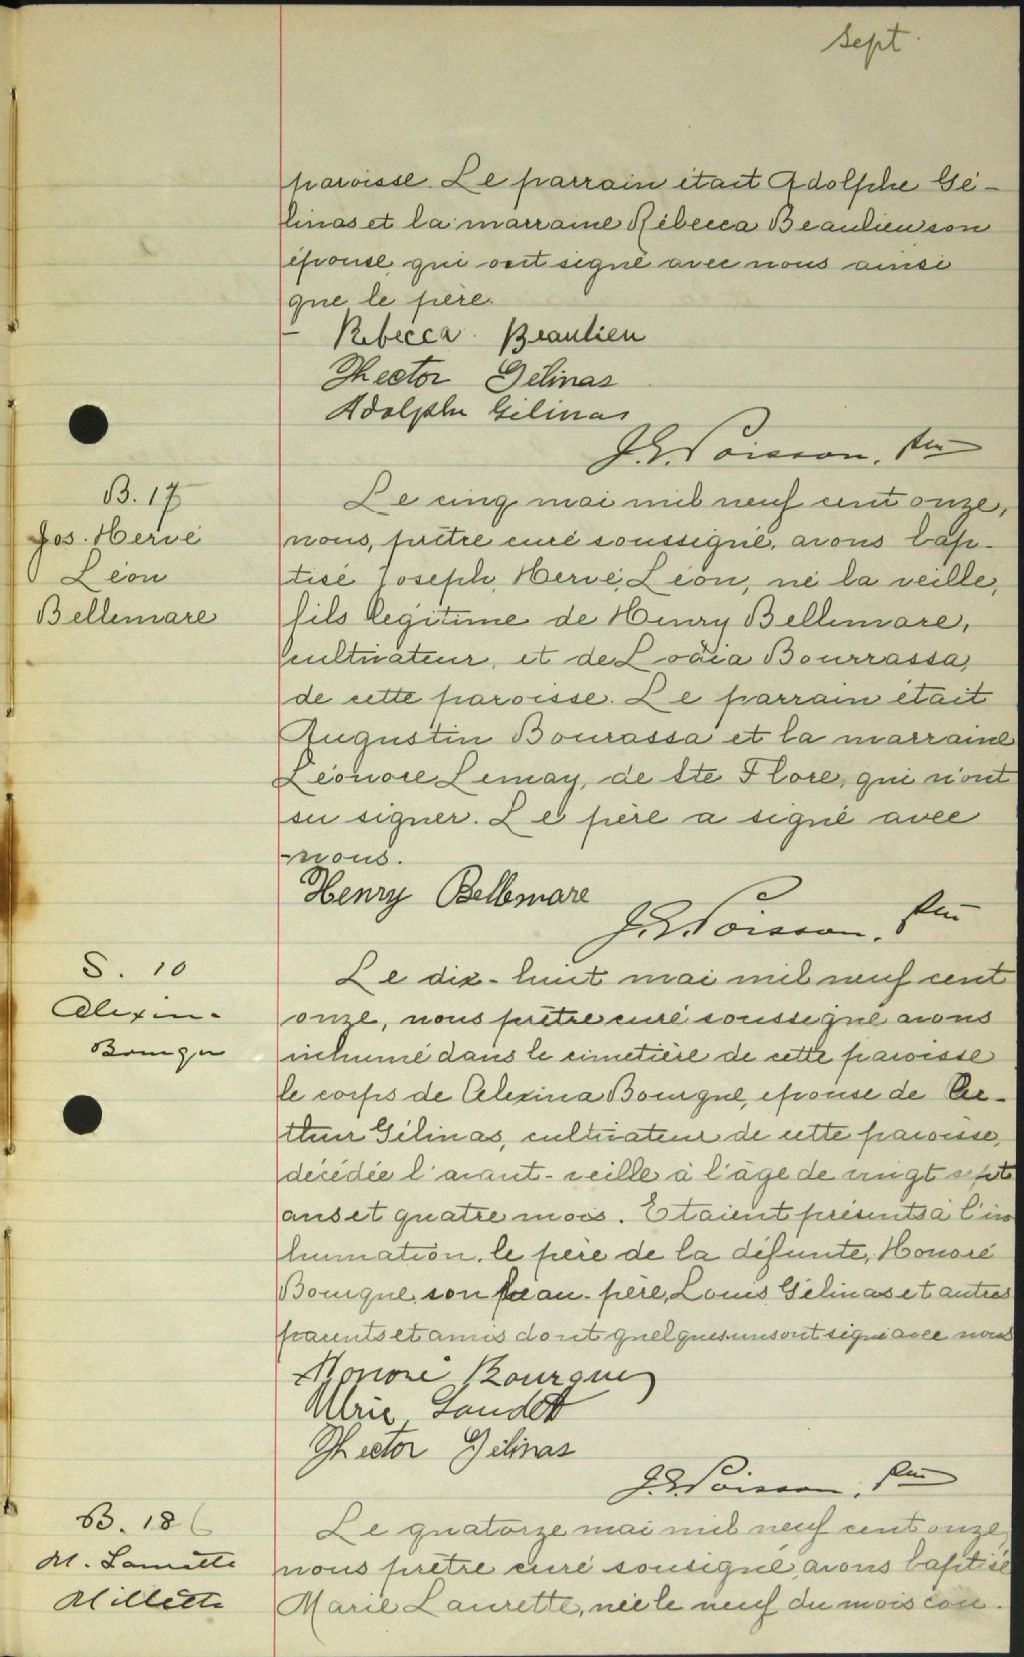 Sept.
paroisse. Le parrain était Adolphe Gé-
linas et la marraine Rébecca Beaulieu son
épouse qui ont signé avec nous ainsi
que le père.
Rebecca Beaulieu
Hector Gélinas
Adolphe Gélinas
J.E. Poisson, Ptre
B. 17
Jos. Hervé
Léon
Bellemare
Le cinq mai mil neuf cent onze,
nous, prêtre curé soussigné, avons bap-
tisé Joseph, Hervé, Léon, né la veille,
fils légitime de Henry Bellemare,
cultivateur, et de Bourrassa,
de cette paroisse. Le parrain était
Augustin Bourassa et la marraine
Léonore Lemay, de Ste Flore, qui n'ont
su signer. Le père a signé avec
nous.
Henry Bellemare
J.E. Poisson, Ptre
S. 10
Alexina
Bourque
Le dix-huit mai mil neuf cent
onze, nous prêtre curé soussigné avons
inhumé dans le cimetière de cette paroisse
le corps de Alexina Bourque, epouse de Ar-
thur Gélinas, cultivateur de cette paroisse,
décédée l'avant-veille à l'âge de vingt sept
ans et quatre mois. Etaient présents à l'in
humation, le père de la défunte, Honoré
Bourque, son beau-père, Louis Gélinas et autres
parents et amis dont quelques uns ont signé avec nous
Honoré Bourque
Ulric Gaudet
Hector Gélinas
J.E. Poisson, Ptre
B. 18
M. Laurette
Millette
Le quatorze mai mil neuf cent onze,
nous prêtre curé sousigné, avons baptisé
Marie Laurette, née le neuf du mois cou-